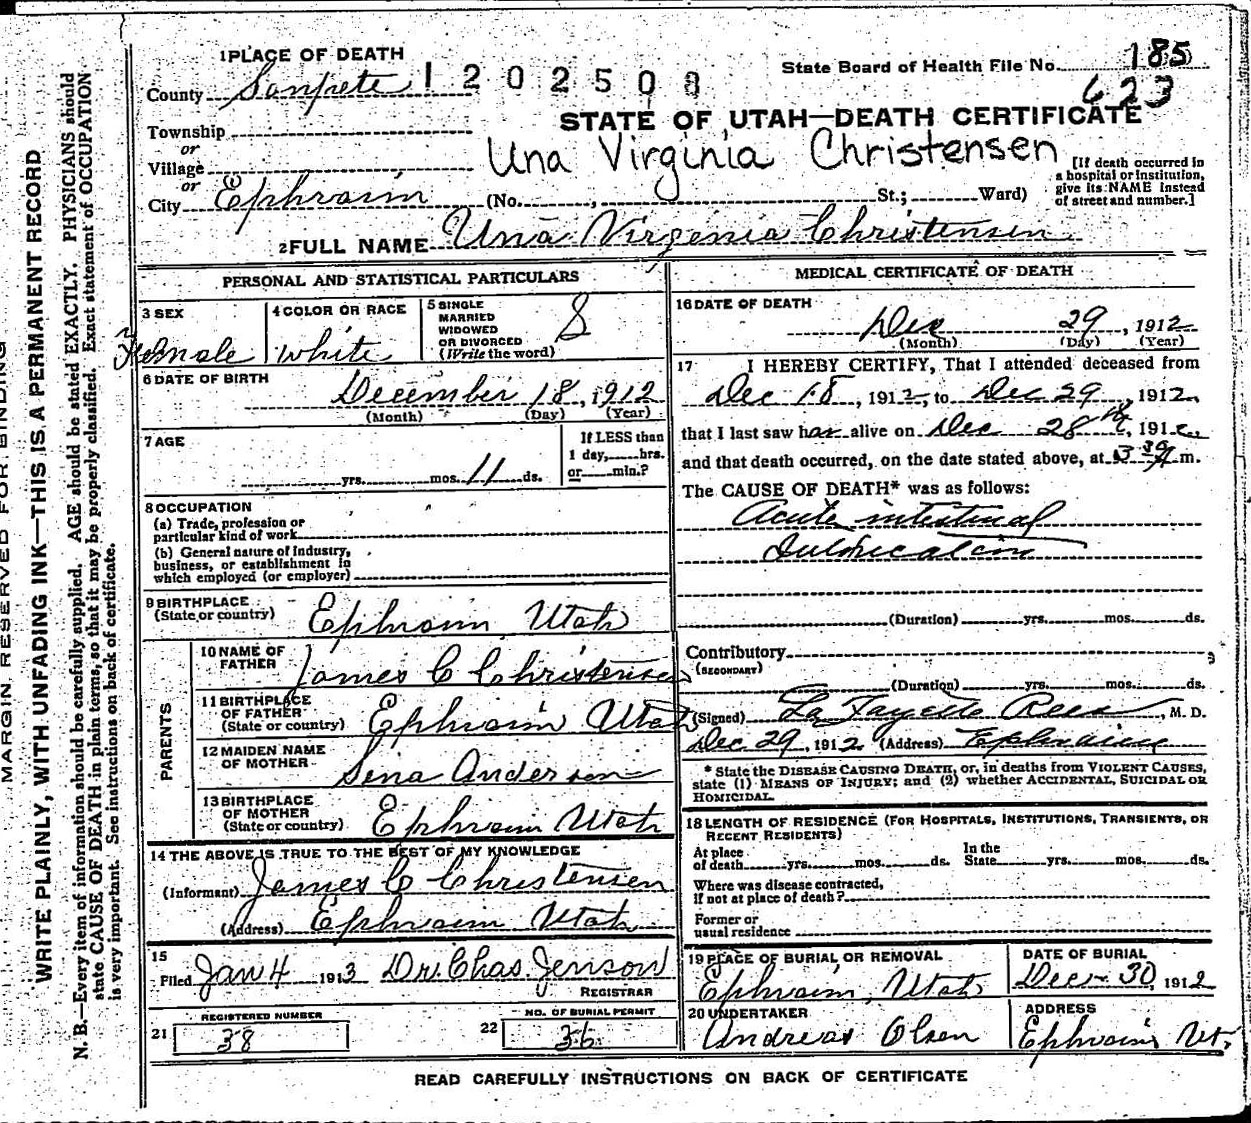 1 PLACE OF DEATH
County Sanpete 1202508
State Board of Health File No. 185
623
STATE OF UTAH—DEATH CERTIFICATE
Township
or
Village
or
City Ephraim (No. , St.; Ward)
Una Virginia Christensen
[If death occurred in
a hospital or institution,
give its NAME instead
of street and number.]
2 FULL NAME Una Virginia Christensen
PERSONAL AND STATISTICAL PARTICULARS
3 SEX
Female
4 COLOR OR RACE
White
5 SINGLE
MARRIED
WIDOWED
OR DIVORCED
(Write the word)
S
6 DATE OF BIRTH
December 18, 1912
(Month) (Day) (Year)
7 AGE
yrs. mos. 11 ds.
If LESS than
1 day, hrs.
or min.?
8 OCCUPATION
(a) Trade, profession or
particular kind of work
(b) General nature of Industry,
business, or establishment in
which employed (or employer)
9 BIRTHPLACE
(State or country)
Ephraim Utah
PARENTS
10 NAME OF
FATHER
James C Christensen
11 BIRTHPLACE
OF FATHER
(State or country)
Ephraim Utah
12 MAIDEN NAME
OF MOTHER
Sena Anderson
13 BIRTHPLACE
OF MOTHER
(State or country)
Ephraim Utah
14 THE ABOVE IS TRUE TO THE BEST OF MY KNOWLEDGE
(Informant) James C Christensen
(Address) Ephraim Utah
15
Filed Jan 4 1913 Dr. Chas. Jenson
REGISTRAR
REGISTERED NUMBER
21 38
NO. OF BURIAL PERMIT
22 36
MEDICAL CERTIFICATE OF DEATH
16 DATE OF DEATH
Dec 29, 1912
(Month) (Day) (Year)
17 I HEREBY CERTIFY, That I attended deceased from
Dec 18, 1912, to Dec 29, 1912,
that I last saw her alive on Dec 28th, 1912,
and that death occurred, on the date stated above, at 3 30 A m.
The CAUSE OF DEATH* was as follows:
Acute intestinal
(Duration) yrs. mos. ds.
Contributory
(SECONDARY)
(Duration) yrs. mos. ds.
(Signed) La Fayette Rees, M. D.
Dec 29, 1912 (Address) Ephraim
* State the DISEASE CAUSING DEATH, or, in deaths from VIOLENT CAUSES,
state (1) MEANS OF INJURY; and (2) whether ACCIDENTAL, SUICIDAL OR
HOMICIDAL.
18 LENGTH OF RESIDENCE (FOR HOSPITALS, INSTITUTIONS, TRANSIENTS, OR
RECENT RESIDENTS)
At place
of death yrs. mos. ds.
In the
State yrs. mos. ds.
Where was disease contracted,
if not at place of death?
Former or
usual residence
19 PLACE OF BURIAL OR REMOVAL
Ephraim, Utah
DATE OF BURIAL
Dec 30, 1912
20 UNDERTAKER
Andreas Olsen
ADDRESS
Ephraim Ut.
READ CAREFULLY INSTRUCTIONS ON BACK OF CERTIFICATE
MARGIN RESERVED FOR BINDING
WRITE PLAINLY, WITH UNFADING INK—THIS IS A PERMANENT RECORD
N. B.—Every item of information should be carefully supplied. AGE should be stated EXACTLY. PHYSICIANS should
state CAUSE OF DEATH in plain terms, so that it may be properly classified. Exact statement of OCCUPATION
is very important. See instructions on back of certificate.